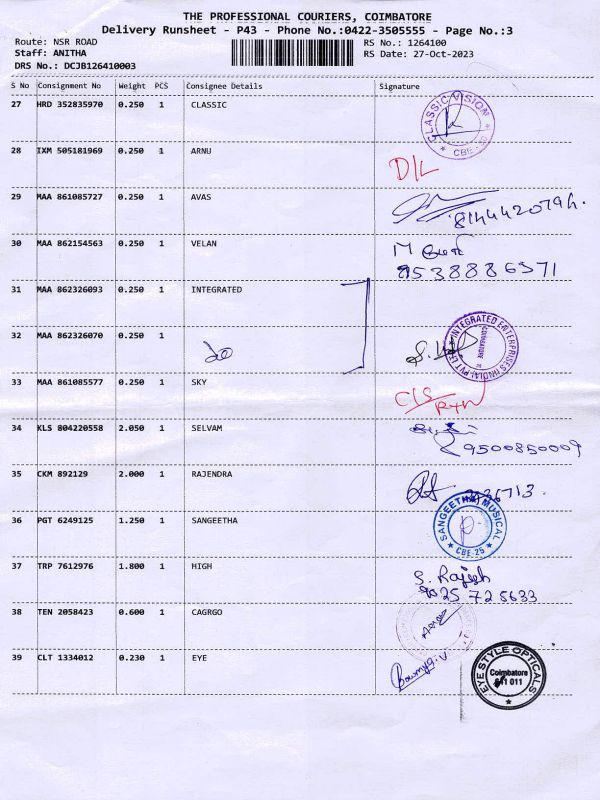 THE PROFESSIONAL COURIERS, COIMBATORE
Delivery Runsheet - P43 - Phone No.:0422-3505555 - Page No.:3
Route: NSR ROAD
Staff: ANITHA
DRS No.: DCJB126410003
RS No.: 1264100
RS Date: 27-Oct-2023
S No Consignment No Weight PCS Consignee Details Signature
27 HRD 352835970 0.250 1 CLASSIC
CLASSIC VISION
★ CBE-38 ★
28 IXM 505181969 0.250 1 ARNU
D/L
29 MAA 861085727 0.250 1 AVAS
8144420794.
30 MAA 862154563 0.250 1 VELAN
9538886571
31 MAA 862326093 0.250 1 INTEGRATED
32 MAA 862326070 0.250 1 do
INTEGRATED ENTERPRISES (INDIA) PVT LTD
COIMBATORE
33 MAA 861085577 0.250 1 SKY
C/S
RTN
34 KLS 804220558 2.050 1 SELVAM
9500850009
35 CKM 892129 2.000 1 RAJENDRA
36 PGT 6249125 1.250 1 SANGEETHA
SANGEETHA MUSICAL
★ CBE-25 ★
37 TRP 7612976 1.800 1 HIGH
S. Rajesh
9025725633
38 TEN 2058423 0.600 1 CAGRGO
39 CLT 1334012 0.230 1 EYE
Bowmya.V
EYE STYLE OPTICALS
Coimbatore
641 011